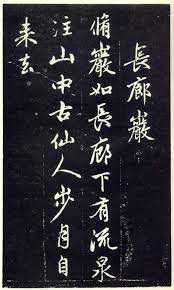 長廊巖
脩巖如長廊下有流泉
注山中古仙人步月自
来去